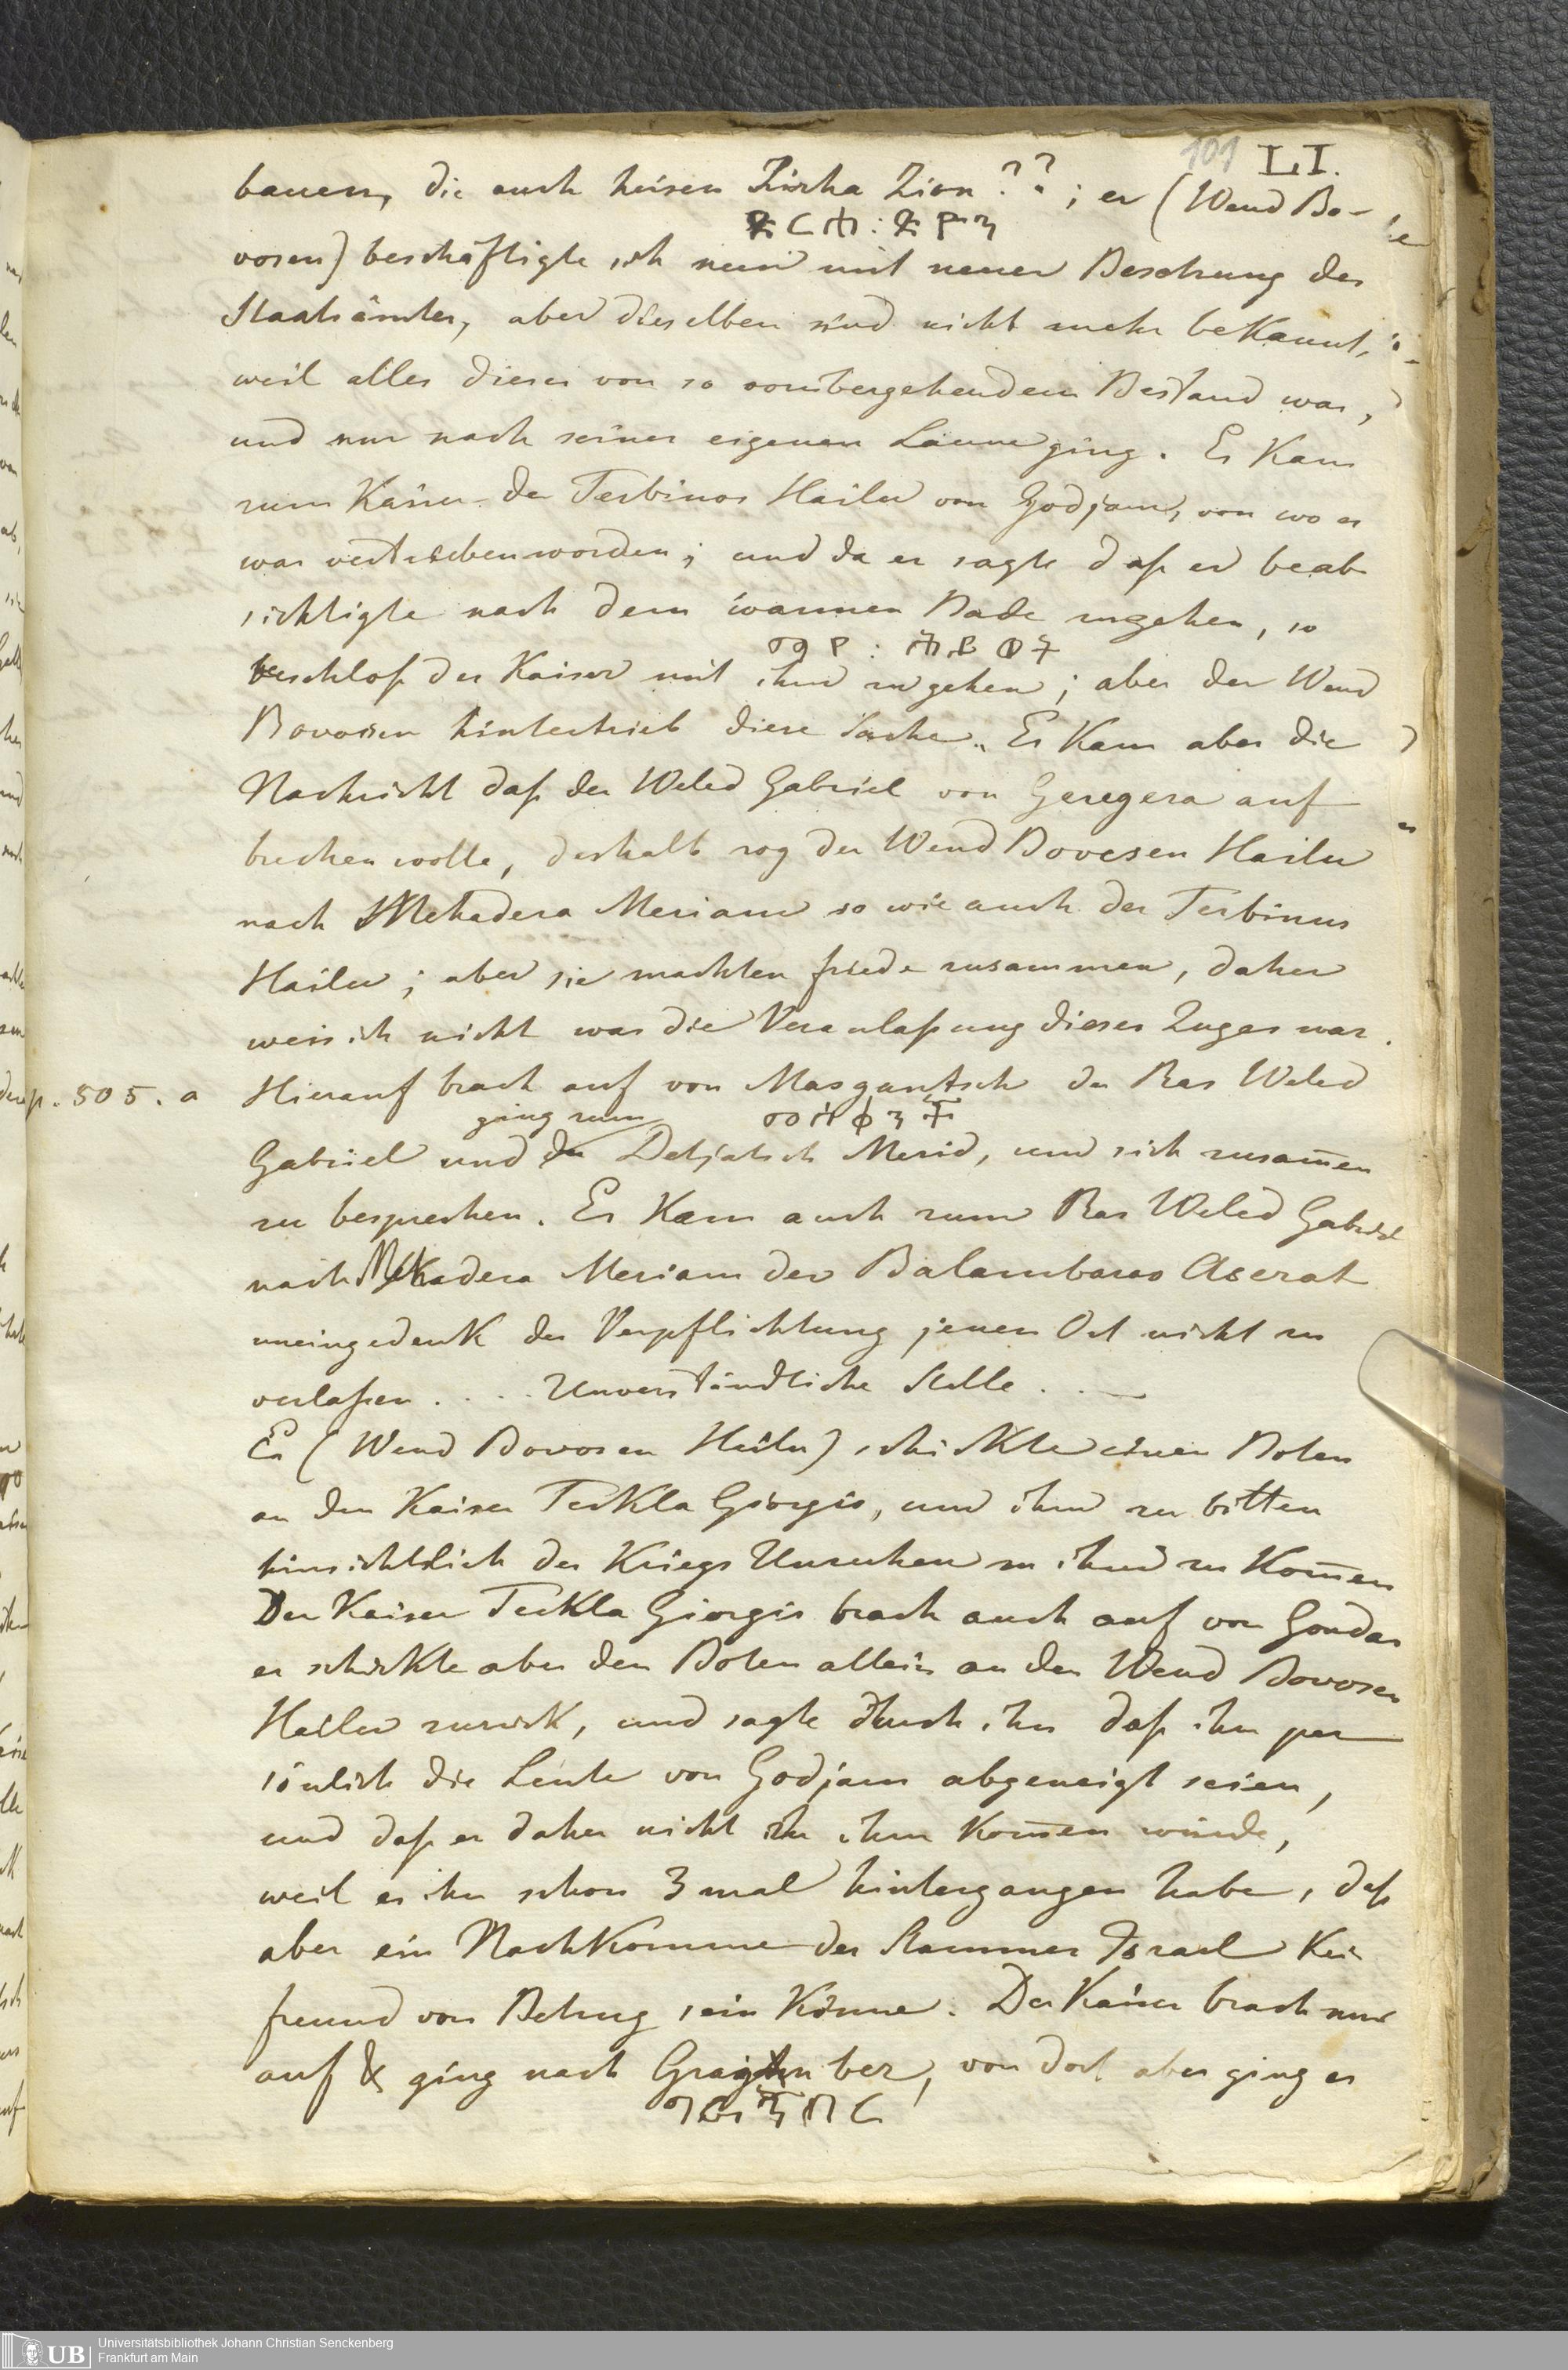 101 LI.
bauen, die auch heisen Zircha Zion ??; er (Wend Bo-
ጺርሐ:ጺዮን
vosen) beschäftigte sich nun mit neuer Besetzung der
Staatsämter, aber dieselben sind nicht mehr bekannt,
weil alles dieses von so vorübergehendem Bestand war,
und nur nach seiner eigenen Laune ging. Es kam
zum Kaiser der Terbinos Hailu von Godjam, von wo er
war vertrieben worden; und da er sagte daß er beab
sichtigte nach dem warmen Bade zugehen, so
ማይ:
beschloß der Kaiser mit ihm zu gehen; aber der Wend
Bovossen hintertrieb diese Sache. Es kam aber die
Nachricht daß der Weled Gabriel von Geregera auf
brechen wolle, deshalb zog der Wend Bovesen Hailu
nach Mekadera Meriam so wie auch der Terbinus
Hailu; aber sie machten friede zusammen, daher
weis ich nicht was die Veranlaßung dieses Zuges war.
p. 505. a Hierauf brach auf von Masgantsch der Ras Weled
ging zum መስቀንች
Gabriel und Detjatsch Merid, um sich zusam̄en
zu besprechen. Es kam auch zum Ras Weled Gabriel
nach Mekadera Meriam der Balambaras Aserat
uneingedenk der Verpflichtung jenen Ort nicht zu
verlaßen .... Unverständliche Stelle ...
Er (Wend Bovosen Heilu) schickte einen Boten
an den Kaiser Teckla Giorgis, um ihm zu bitten
hinsichtlich der Kriegs Unruhen zu ihm zu kom̄en
Der Kaiser Teckla Giorgis brach auch auf von Gondar
er schickte aber den Boten allein an den Wend Bovosen
Hailu zurück, und sagte durch ihn daß ihm per
sönlich die Leute von Godjam abgeneigt seien,
und daß er daher nicht zu ihm kom̄en würde,
weil er ihn schon 3 mal hintergangen habe, daß
aber ein Nachkomme der Stammes Israel kein
freund von Betrug sein könne. Der Kaiser brach nun
auf & ging nach Gragnber, von dort aber ging er
ግራኝበር